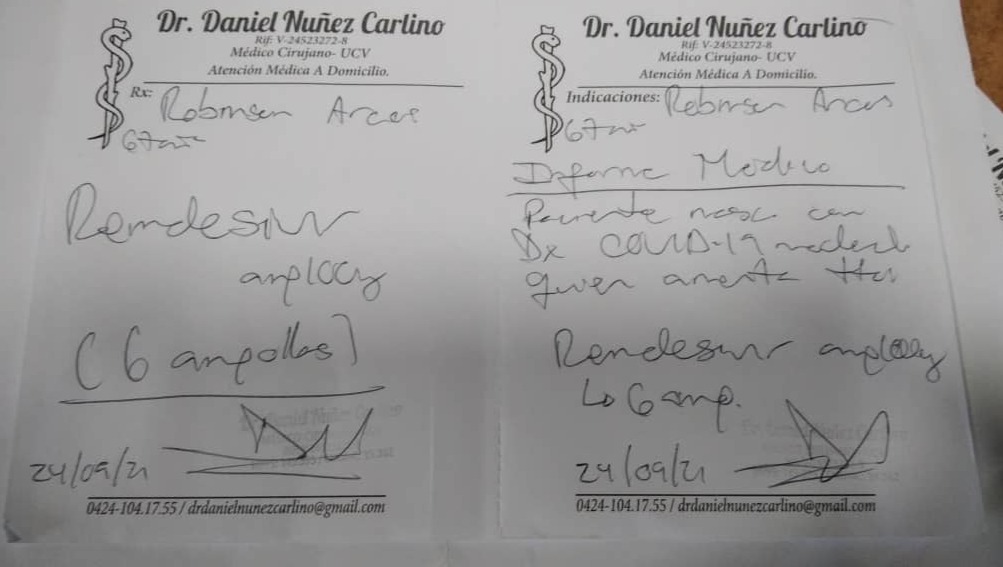 Dr. Daniel Nuñez Carlino
Rif: V-24523272-8
Médico Cirujano- UCV
Atención Médica A Domicilio.
Rx: Robinson Arces
67
Remdesivir
amp 100
(6 ampollas)
24/09/21
0424-104.17.55 / drdanielnunezcarlino@gmail.com
Dr. Daniel Nuñez Carlino
Rif: V-24523272-8
Médico Cirujano- UCV
Atención Médica A Domicilio.
Indicaciones: Robinson Arces
67
Informe Medico
Paciente masc con
Dx COVID-19
quien amerita
Remdesivir amp
6 amp.
24/09/21
0424-104.17.55 / drdanielnunezcarlino@gmail.com